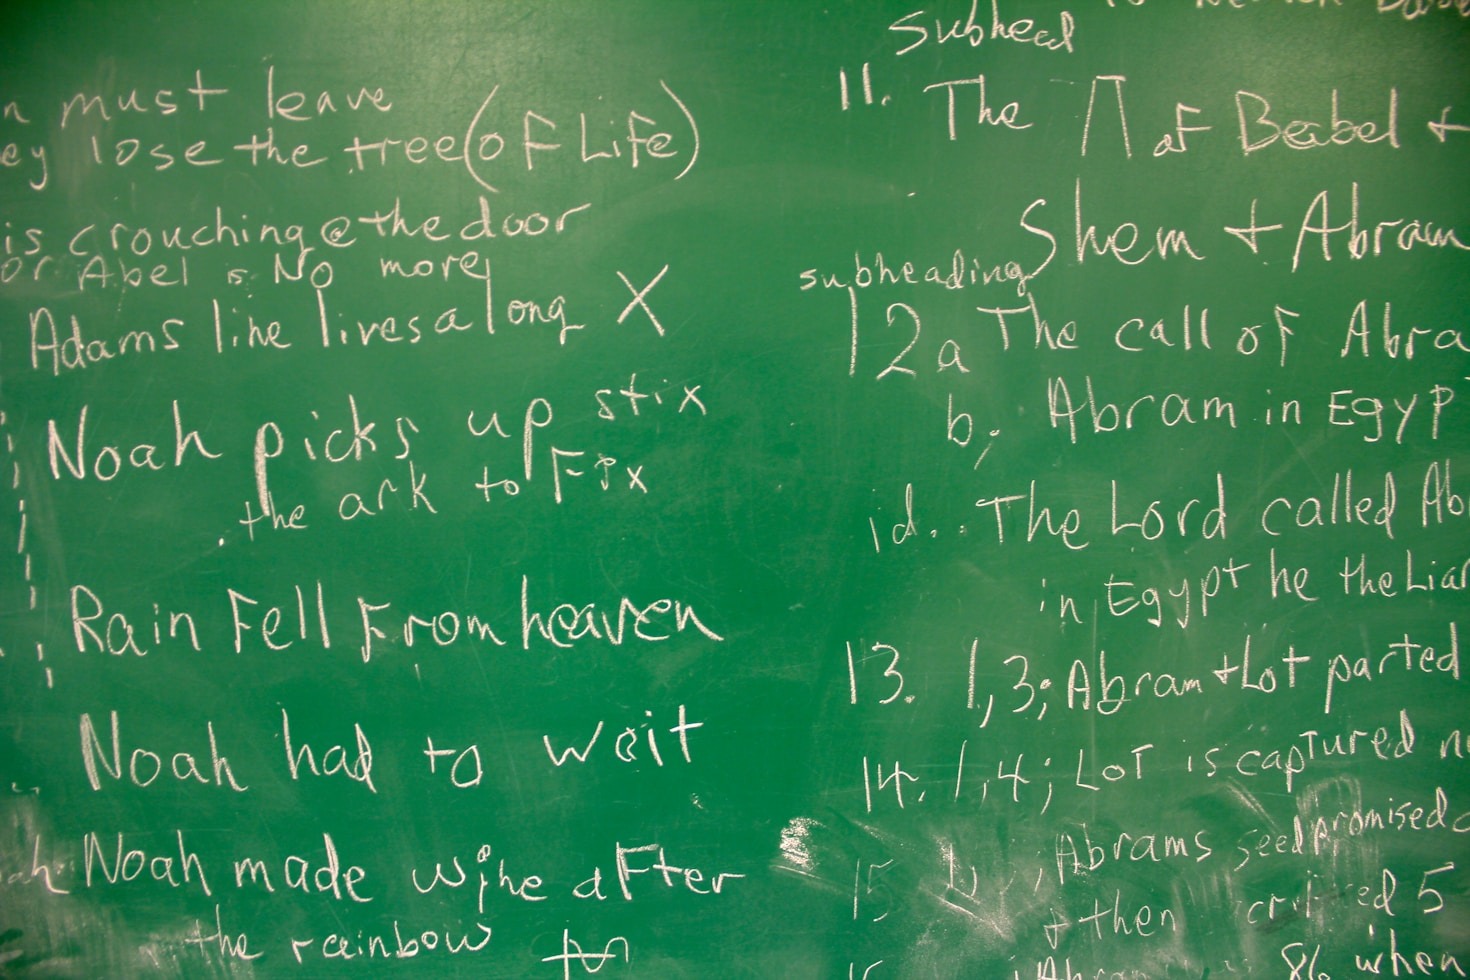 n must leave
ey lose the tree (of Life)
is crouching @ the door
or Abel is No more
Adams line lives a long X
Noah picks up stix
the ark to Fix
Rain Fell From heaven
Noah had to wait
Noah made wine after
the rainbow
subhead
11. The Π of Babel +
Shem + Abram
subheading
12a The call of Abra
b. Abram in Egyp
d. The Lord called Ab
in Egypt he the Liar
13. 1,3; Abram + Lot parted
14. 1,4; Lot is captured
15 Abrams seed promised
+ then 5
86 when